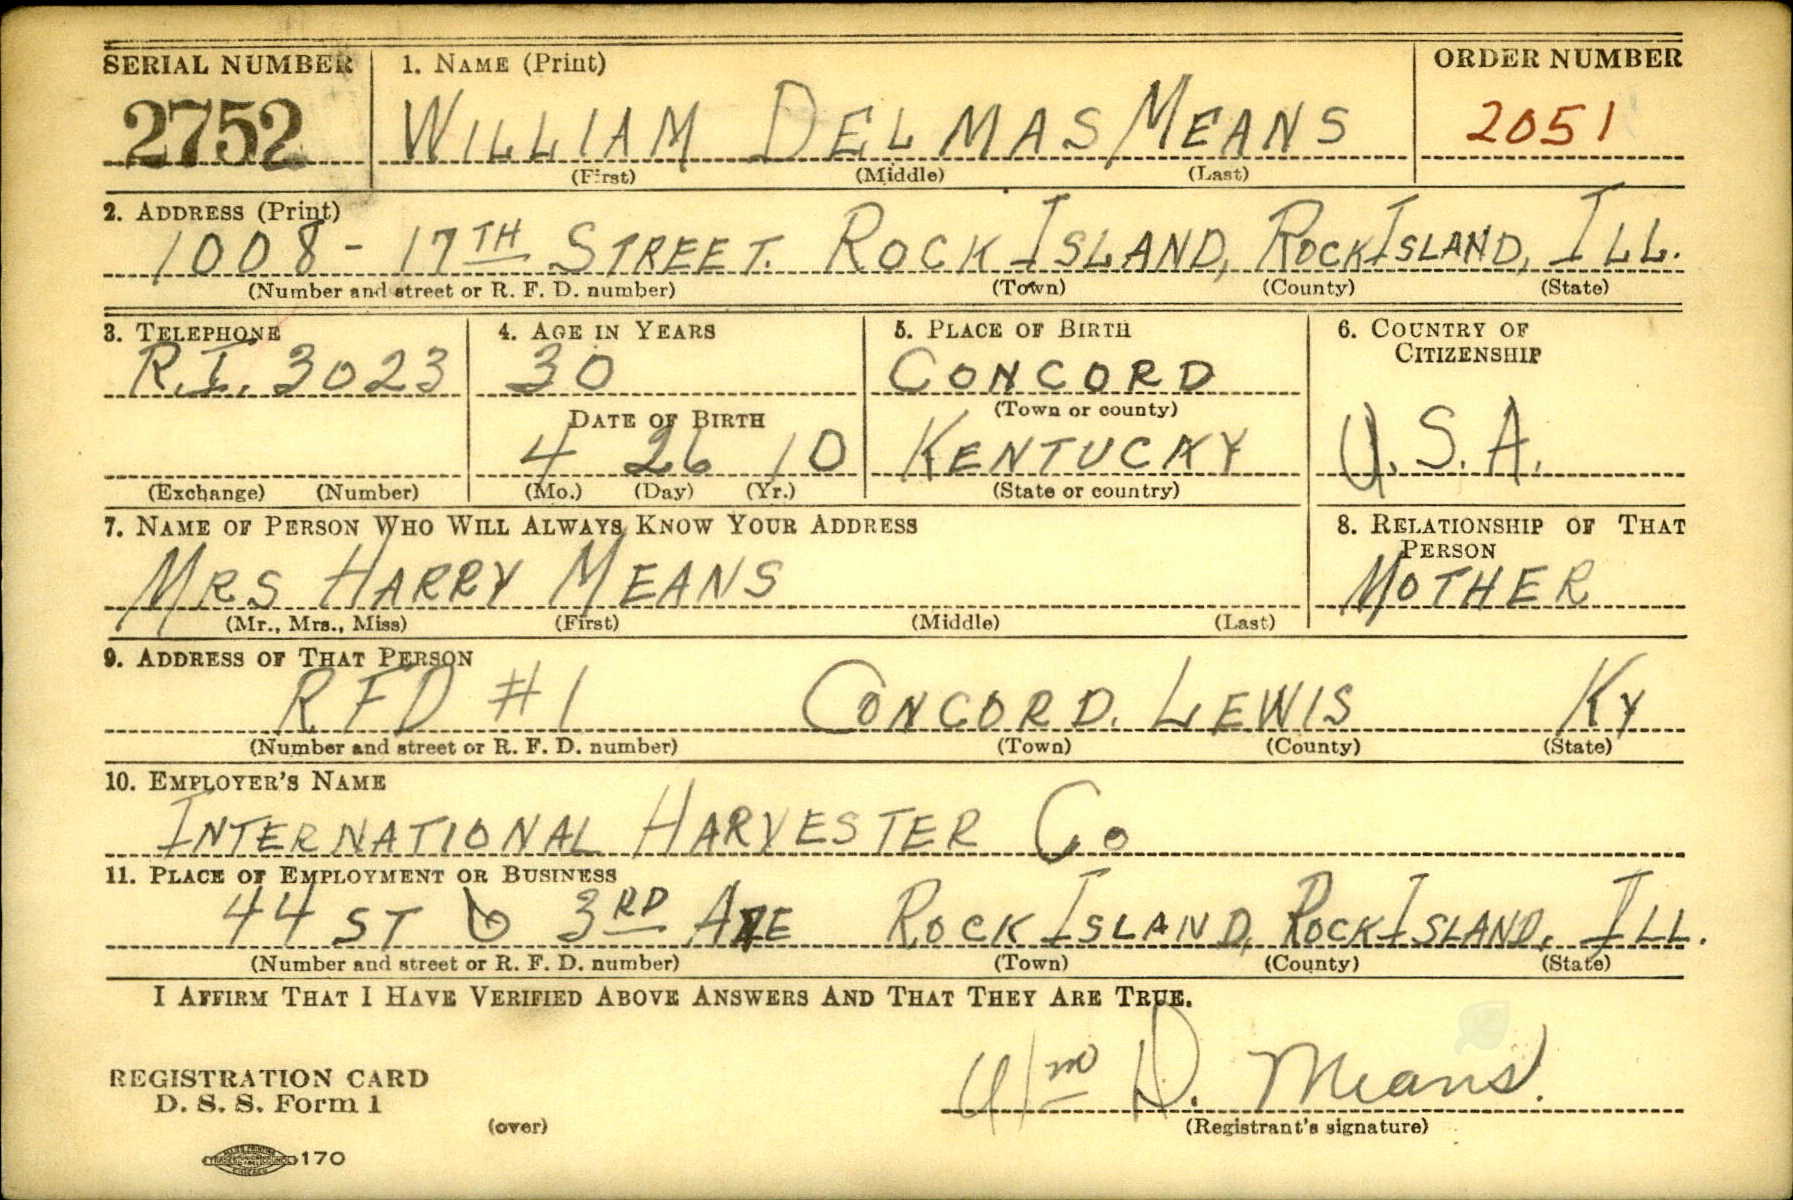 SERIAL NUMBER 1. NAME (Print) ORDER NUMBER
2752 WILLIAM DELMAS MEANS 2051
(First) (Middle) (Last)
2. ADDRESS (Print)
1008 - 17TH STREET. ROCK ISLAND, ROCK ISLAND, ILL.
(Number and street or R. F. D. number) (Town) (County) (State)
3. TELEPHONE 4. AGE IN YEARS 5. PLACE OF BIRTH 6. COUNTRY OF
CITIZENSHIP
R.I. 3023 30 CONCORD
DATE OF BIRTH (Town or county)
4 26 10 KENTUCKY U.S.A.
(Exchange) (Number) (Mo.) (Day) (Yr.) (State or country)
7. NAME OF PERSON WHO WILL ALWAYS KNOW YOUR ADDRESS 8. RELATIONSHIP OF THAT
PERSON
MRS HARRY MEANS MOTHER
(Mr., Mrs., Miss) (First) (Middle) (Last)
9. ADDRESS OF THAT PERSON
RFD #1 CONCORD. LEWIS KY
(Number and street or R. F. D. number) (Town) (County) (State)
10. EMPLOYER'S NAME
INTERNATIONAL HARVESTER Co
11. PLACE OF EMPLOYMENT OR BUSINESS
44 ST & 3RD AVE ROCK ISLAND, ROCK ISLAND, ILL.
(Number and street or R. F. D. number) (Town) (County) (State)
I AFFIRM THAT I HAVE VERIFIED ABOVE ANSWERS AND THAT THEY ARE TRUE.
REGISTRATION CARD
D. S. S. Form 1
Wm D. Means.
(over) (Registrant's signature)
170